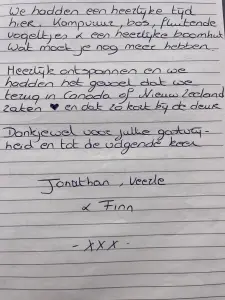 We hadden een heerlijke tijd
hier. Kampvuur, bos, fluitende
vogeltjes & een heerlijke boomhut
Wat moet je nog meer hebben.
Heerlijk ontspannen en we
hadden het gevoel dat we
terug in Canada of Nieuw Zeeland
zaten ♥ en dat zo kort bij de deur
Dankjewel voor jullie gastvrij-
heid en tot de volgende keer
Jonathan, Veerle
& Finn
- xxx -